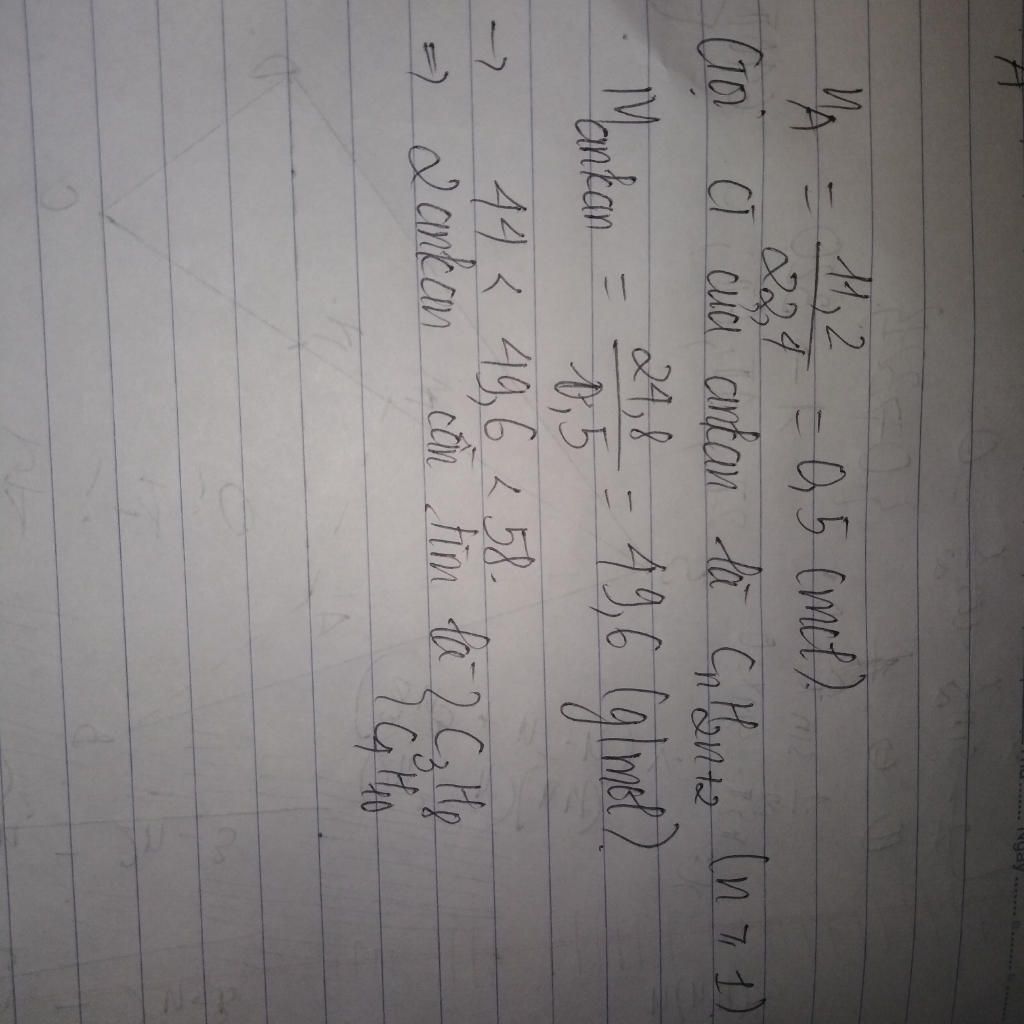 n_A = 11,2 / 22,4 = 0,5 (mol).
Gọi CT của ankan là CnH2n+2 (n ≥ 1)
M ankan = 24,8 / 0,5 = 49,6 (g/mol).
→ 44 < 49,6 < 58.
=> 2 ankan cần tìm là { C3H8
{ C4H10